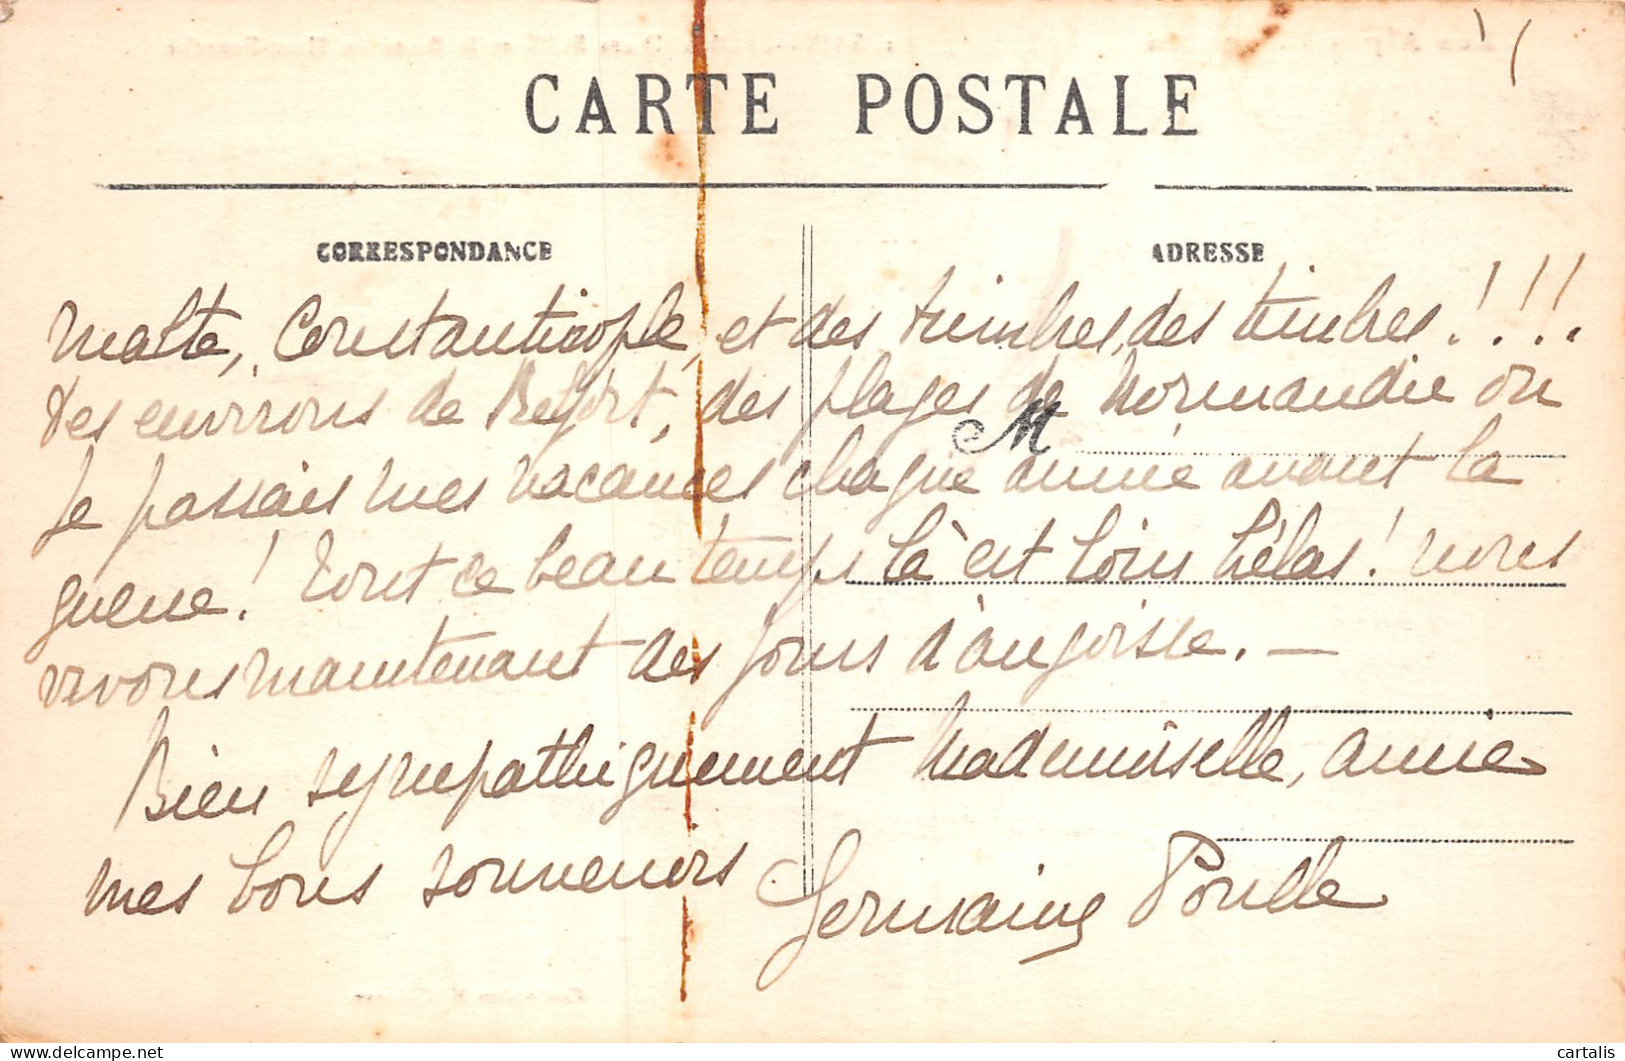 CARTE POSTALE
CORRESPONDANCE
ADRESSE
Malte, Constantinople, et des timbres, des timbres!!!.
des environs de Belfort, des plages de Normandie où
M
je passais mes vacances chaque année avant la
guerre! Tout ce beau temps là est loin hélas! nous
vivons maintenant des jours d'angoisse. —
Bien sympathiquement Mademoiselle, avec
mes bons souvenirs Germaine Poulle
cartalis